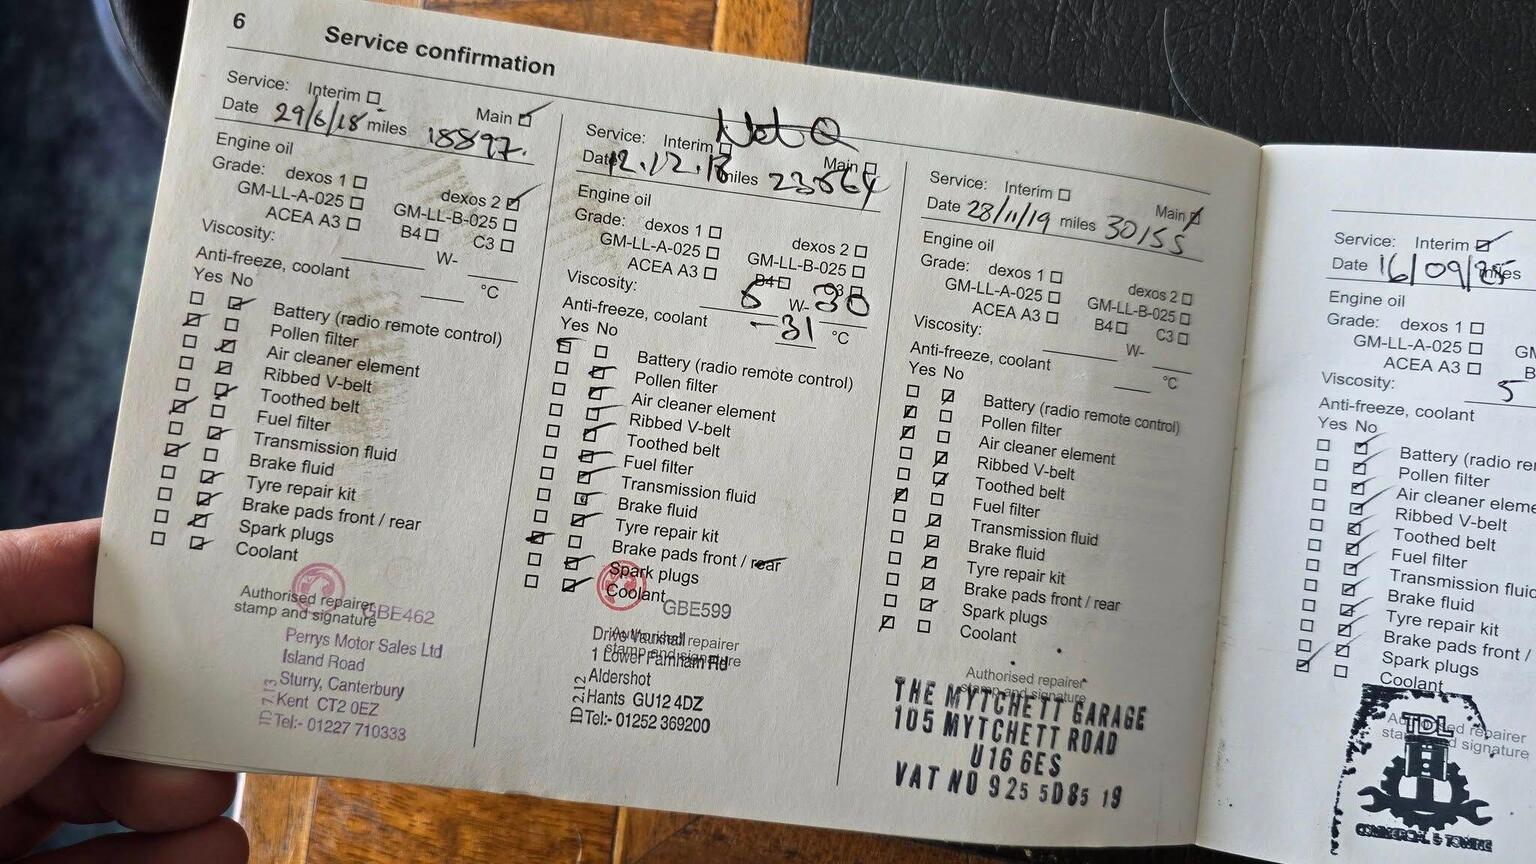 6
Service confirmation
Service: Interim
Main
Date 29/6/18 miles 18897.
Engine oil
Grade: dexos 1
dexos 2
GM-LL-A-025
GM-LL-B-025
ACEA A3
B4 C3
Viscosity:
W-
Anti-freeze, coolant
°C
Yes No
Battery (radio remote control)
Pollen filter
Air cleaner element
Ribbed V-belt
Toothed belt
Fuel filter
Transmission fluid
Brake fluid
Tyre repair kit
Brake pads front / rear
Spark plugs
Coolant
Authorised repairer
stamp and signature
GBE462
Perrys Motor Sales Ltd
Island Road
Sturry, Canterbury
Kent CT2 0EZ
Tel:- 01227 710333
ID 7.13
Service: Interim
Main
Date 12.12.18 miles
Engine oil
Grade: dexos 1
dexos 2
GM-LL-A-025
GM-LL-B-025
ACEA A3
B4 C3
Viscosity:
W- 30
Anti-freeze, coolant
-31 °C
Yes No
Battery (radio remote control)
Pollen filter
Air cleaner element
Ribbed V-belt
Toothed belt
Fuel filter
Transmission fluid
Brake fluid
Tyre repair kit
Brake pads front / rear
Spark plugs
Coolant
GBE599
Authorised repairer
stamp and signature
Drive Vauxhall
1 Lower Farnham Rd
Aldershot
Hants GU12 4DZ
Tel:- 01252 369200
ID 2.12
Service: Interim
Main
Date 28/11/19 miles 30155
Engine oil
Grade: dexos 1
dexos 2
GM-LL-A-025
GM-LL-B-025
ACEA A3
B4 C3
Viscosity:
W-
Anti-freeze, coolant
°C
Yes No
Battery (radio remote control)
Pollen filter
Air cleaner element
Ribbed V-belt
Toothed belt
Fuel filter
Transmission fluid
Brake fluid
Tyre repair kit
Brake pads front / rear
Spark plugs
Coolant
Authorised repairer
stamp and signature
THE MYTCHETT GARAGE
105 MYTCHETT ROAD
U16 6ES
VAT NO 925 5085 19
Service: Interim
Date 16/09/25 miles
Engine oil
Grade: dexos 1
GM-LL-A-025
GM
ACEA A3
B
Viscosity:
5
Anti-freeze, coolant
Yes No
Battery (radio re
Pollen filter
Air cleaner eleme
Ribbed V-belt
Toothed belt
Fuel filter
Transmission fluid
Brake fluid
Tyre repair kit
Brake pads front /
Spark plugs
Coolant
Authorised repairer
stamp and signature
TDL
COMMERCIAL & TOWING